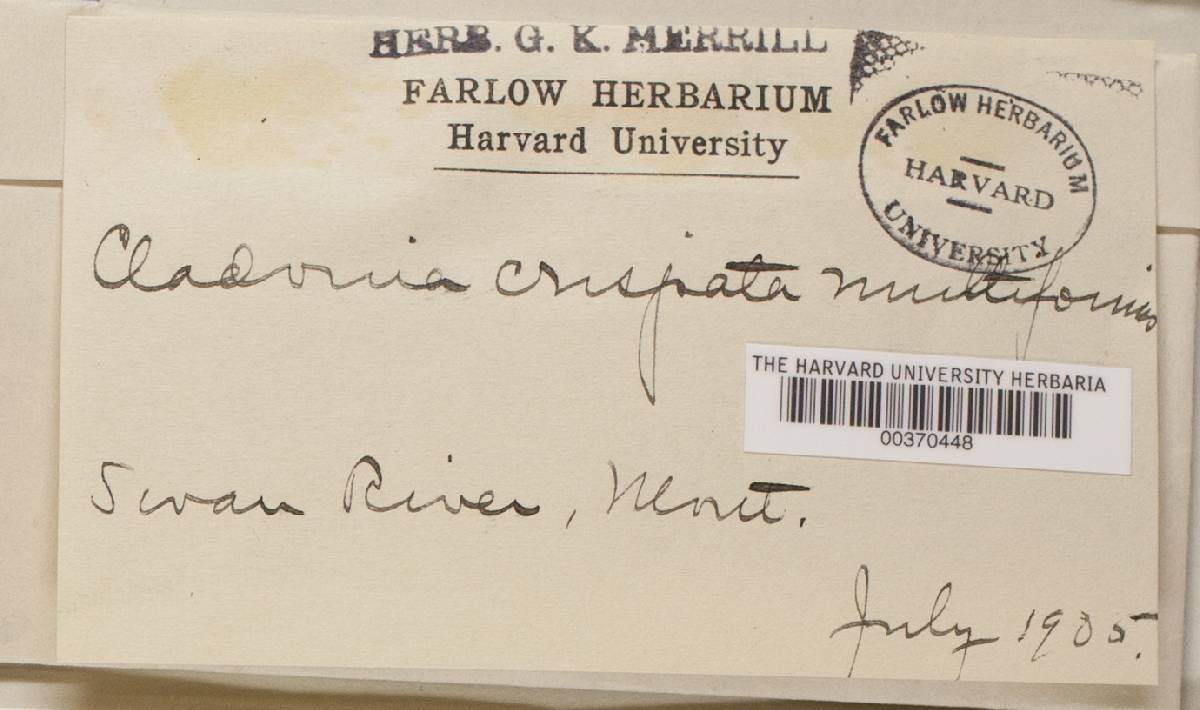 HERB. G. K. MERRILL
FARLOW HERBARIUM
Harvard University
FARLOW HERBARIUM
HARVARD
UNIVERSITY
Cladonia crispata multiformis
THE HARVARD UNIVERSITY HERBARIA
00370448
Swan River, Mont.
July 1905.